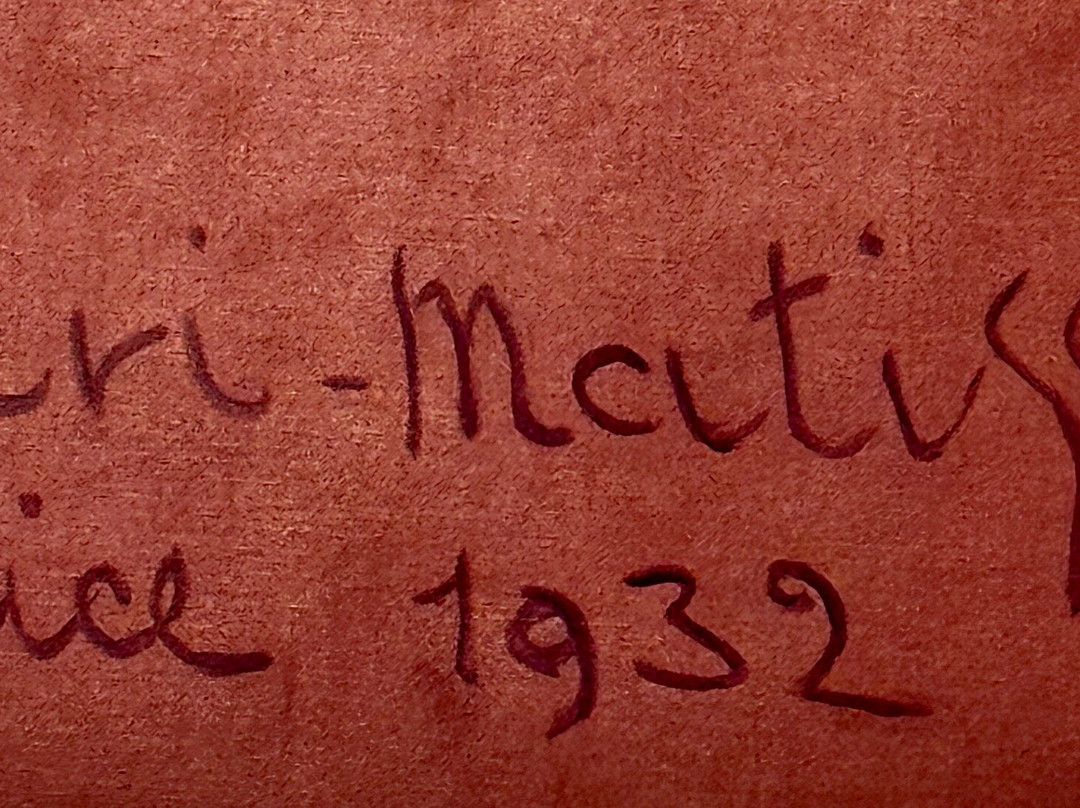 ri-Matiss
ice 1932